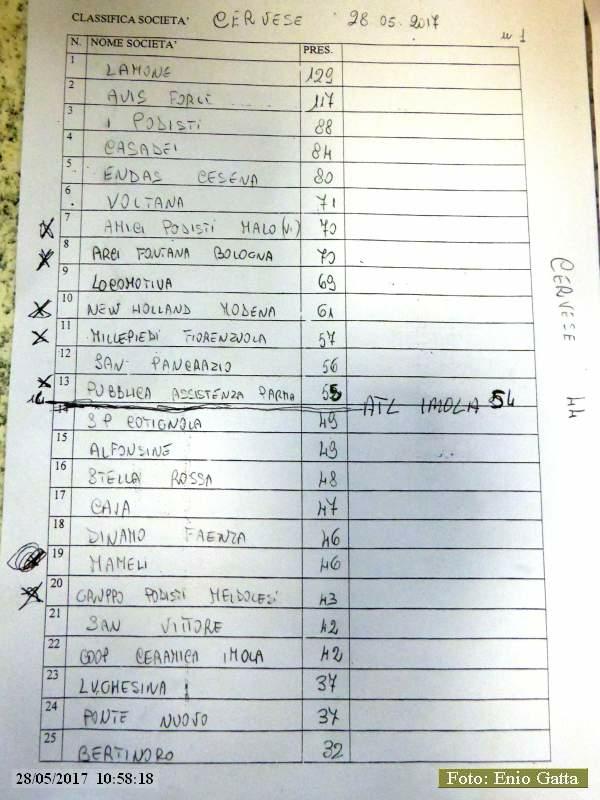 CLASSIFICA SOCIETA' CERVESE 28 05.2017
N. NOME SOCIETA' PRES.
1 LAMONE 129
2 AVIS FORLI 117
3 I PODISTI 88
4 CASADEI 84
5 ENDAS CESENA 80
6 VOLTANA 71
7 AMICI PODISTI MALO (VI) 70
8 ARCI FONTANA BOLOGNA 70
9 LOCOMOTIVA 69
10 NEW HOLLAND MODENA 61
11 MILLEPIEDI FIORENZUOLA 57
12 SAN PANCRAZIO 56
13 PUBBLICA ASSISTENZA PARMA 55
14 ATL IMOLA 54
14 SP COTIGNOLA 49
15 ALFONSINE 49
16 STELLA ROSSA 48
17 CAJA 47
18 DINAMO FAENZA 46
19 MAMELI 46
20 GRUPPO PODISTI MELDOLESI 43
21 SAN VITTORE 42
22 COOP CERAMICA IMOLA 42
23 LUGHESINA 37
24 PONTE NUOVO 37
25 BERTINORO 32
CERVESE 44
28/05/2017 10:58:18
Foto: Enio Gatta